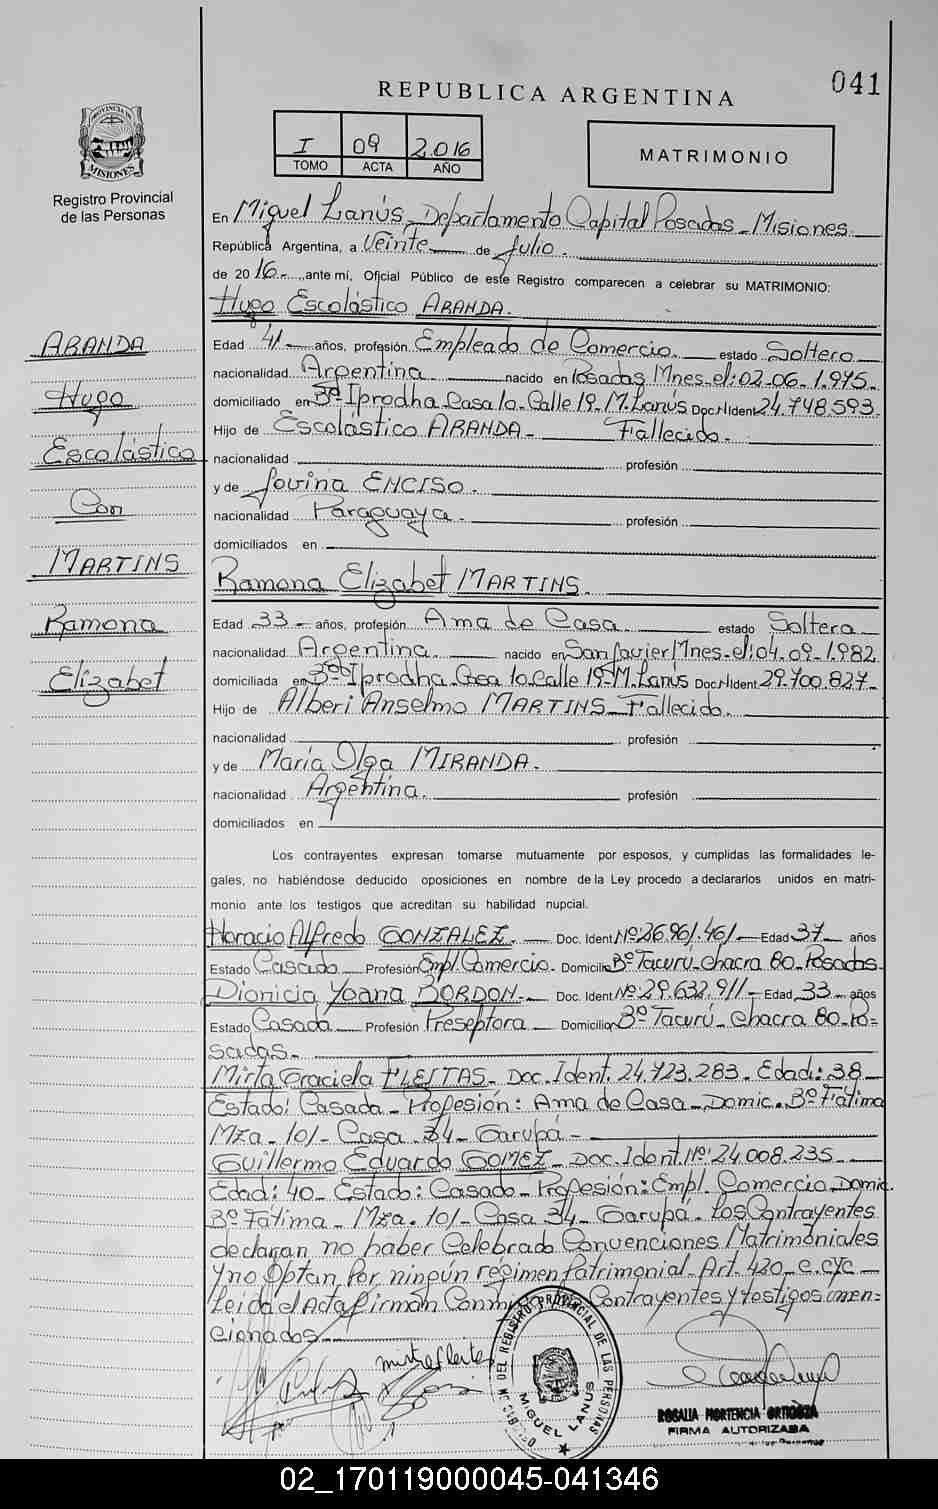 041
REPUBLICA ARGENTINA
PROVINCIA DE MISIONES
I 09 2.016
TOMO ACTA AÑO
MATRIMONIO
Registro Provincial
de las Personas
En Miguel Lanús, Departamento Capital Posadas - Misiones
República Argentina, a Veinte de Julio.
de 2016.- ante mí, Oficial Público de este Registro comparecen a celebrar su MATRIMONIO:
Hugo Escolástico ARANDA.
Edad 41 años, profesión Empleado de Comercio. estado Soltero
nacionalidad Argentina nacido en Posadas Mnes. el: 02-06-1.975.
domiciliado en Bº Iprodha Casa 10 Calle 19 - M. Lanús Doc. N Ident 24.748.593.
Hijo de Escolástico ARANDA - Fallecido.
nacionalidad profesión
y de Jovina ENCISO.
nacionalidad Paraguaya. profesión
domiciliados en
Ramona Elizabet MARTINS.
Edad 33 - años, profesión Ama de Casa. estado Soltera
nacionalidad Argentina. nacido en San Javier Mnes. el: 04-09-1.982
domiciliada en Bº Iprodha Casa 10 Calle 19 - M. Lanús Doc. N Ident 29.700.827-
Hijo de Alberi Anselmo MARTINS - Fallecido.
nacionalidad profesión
y de María Olga MIRANDA.
nacionalidad Argentina. profesión
domiciliados en
ARANDA
Hugo
Escolástico
Con
MARTINS
Ramona
Elizabet
Los contrayentes expresan tomarse mutuamente por esposos, y cumplidas las formalidades le-
gales, no habiéndose deducido oposiciones en nombre de la Ley procedo a declararlos unidos en matri-
monio ante los testigos que acreditan su habilidad nupcial.
Horacio Alfredo GONZALEZ. Doc. Ident Nº: 26.961.461 - Edad 37 años
Estado Casado Profesión Empl. Comercio. Domicilio Bº Tacurú - Chacra 80 - Posadas
Dionicia Yoana BORDON. Doc. Ident Nº: 29.632.911 - Edad 33 años
Estado Casada Profesión Preseptora Domicilio Bº Tacurú - Chacra 80 - Po-
sadas.
Mirta Graciela FLEITAS - Doc. Ident. 24.723.283. Edad: 38
Estado: Casada - Profesión: Ama de Casa - Domic. Bº Fátima
Mza - 101 - Casa 34 - Garupá -
Guillermo Eduardo GOMEZ - Doc. Ident. Nº: 24.008.235.
Edad: 40 - Estado: Casado - Profesión: Empl. Comercio. Domic.
Bº Fátima - Mza. 101 - Casa 34 - Garupá. Los Contrayentes
declaran no haber Celebrado Convenciones Matrimoniales
y no Optan por ningún regimen Patrimonial - Art. 420 - C.CyC -
Leída el Acta firman Conmigo Contrayentes y testigos men-
cionados
mirta fleitas
DEL REGISTRO PROVINCIAL DE LAS PERSONAS
MIGUEL LANUS
ROSALIA HORTENCIA ORTIGOZA
FIRMA AUTORIZADA
02_170119000045-041346